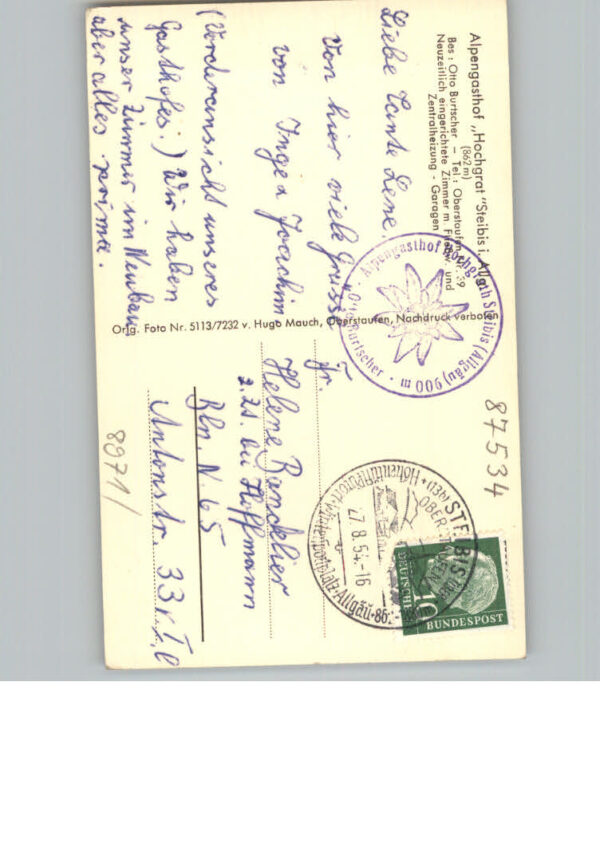 Alpengasthof „Hochgrat" Steibis i. Allg.
(862 m)
Bes.: Otto Burtscher – Tel.: Oberstaufen
Neuzeitlich eingerichtete Zimmer m. Fließw. und
Zentralheizung - Garagen
Liebe Tante Lene
Von hier viele Grüsse
von Inge u Joachim
(Vorderansicht unseres
Gasthofes.) Wir haben
unser Zimmer im Neubau
aber alles prima.
Orig. Foto Nr. 5113/7232 v. Hugo Mauch, Oberstaufen, Nachdruck verboten
Alpengasthof Hochgrat Steibis (Allgäu) 900 m
Otto Burtscher
87534
STEIBIS über
OBERSTAUFEN
Höhenluftkurort Wintersportplatz Allgäu
27.8.54-16
10
DEUTSCHE
BUNDESPOST
Fr.
Helene
z. Zt. bei Hoffmann
Bln. N. 65
Antonstr. 33
8971/